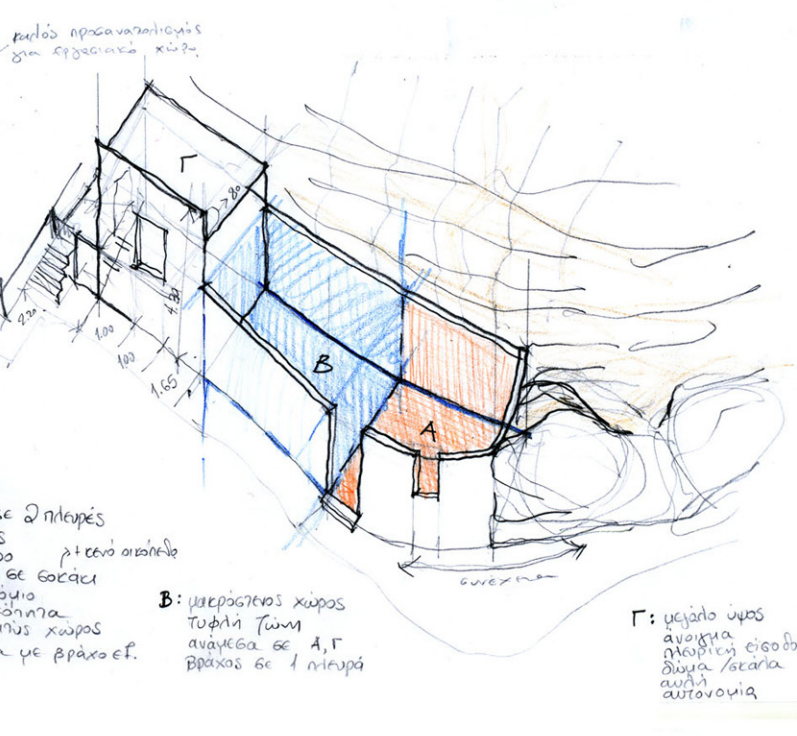 καλός προσανατολισμός
για εργασιακό χώρο
Γ
80
4.30
2.20
1.00
1.00
1.65
B
A
συνέχεια
σε 2 πλευρές
ρ+κενό οικόπεδο
σε σοκάκι
χώρος
με βράχο εξ.
B: μακρόστενος χώρος
τυφλή ζώνη
ανάμεσα σε Α, Γ
βράχος σε 1 πλευρά
Γ: μεγάλο ύψος
άνοιγμα
πλευρική είσοδο
δώμα / σκάλα
αυλή
αυτονομία